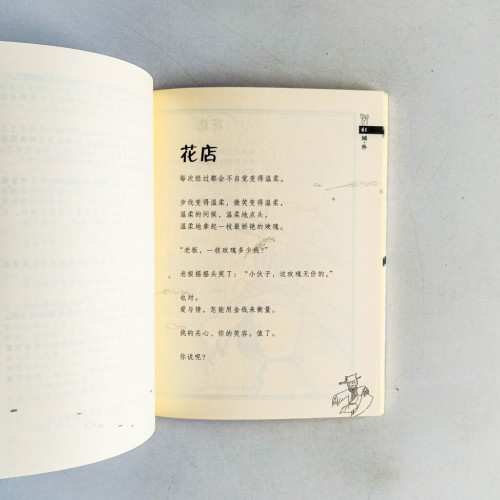 花店
每次经过都会不自觉变得温柔。
步伐变得温柔，微笑变得温柔，
温柔的问候，温柔地点头，
温柔地拿起一枝最娇艳的玫瑰。
“老板，一枝玫瑰多少钱？”
老板摇摇头笑了：“小伙子，这玫瑰无价的。”
也对。
爱与情，怎能用金钱来衡量。
我的关心、你的笑容。值了。
你说呢？